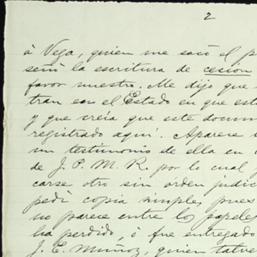 2
á Vega, quien me sacó el p
señó la escritura de cesion
favor nuestro. Me dijo que
tran son el Estado en que est
y que creía que este docum
registrado aquí. Aparece
un testimonio de ella en
de J. P. M. R. por lo cual
carse otro sin orden judic
pedí copia simple, pues
no parece entre los papeles
ha perdido, ó fue entregado
J. E. Muñoz, quien talve